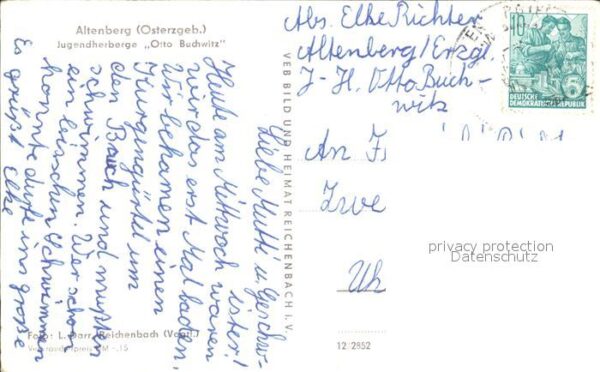 Altenberg (Osterzgeb.)
Jugendherberge „Otto Buchwitz"
Abs. Elke Richter
Altenberg/Erzg.
J-H. Otto Buch-
witz
10
DEUTSCHE
DEMOKRATISCHE REPUBLIK
Liebe Mutti u. Geschw-
ister!
Heute am Mittwoch waren
wir das erst Mal baden.
Wir bekamen einen
um
den Bauch und mußten
schwimmen. Wer schon
ein bisschen schwimmen
konnte durfte ins große
Es grüßt Elke
VEB BILD UND HEIMAT REICHENBACH i. V.
An F
Zwe
Uh
privacy protection
Datenschutz
Foto: L. Darr, Reichenbach (Vogtl.)
Verbraucherpreis DM -.15